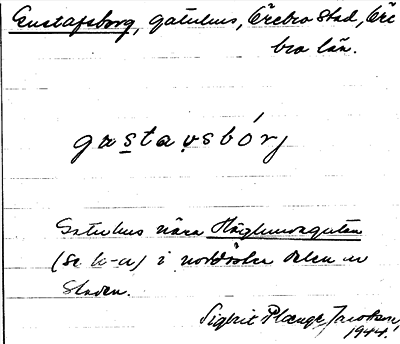 Gustafsborg, gatuhus, Örebro stad, Öre
bro län.
gustavsbórj
Gatuhus nära Höglundagatan
(se h-a) i nordöstra delen av
staden.
Sigbrit Plænge Jacobson,
1944.